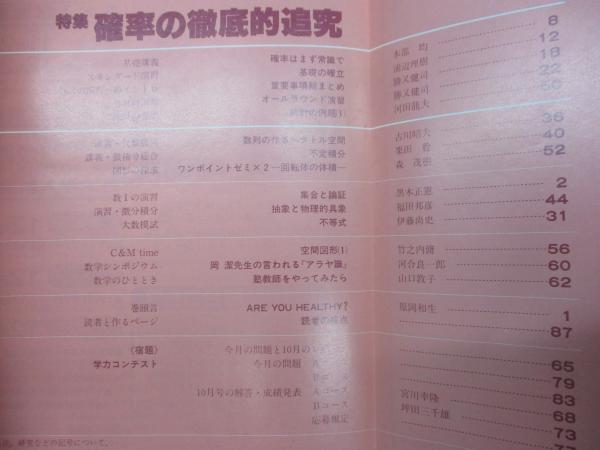 特集 確率の徹底的追究
基礎講義 確率はまず常識で 木部 均 8
スタンダード演習 基礎の確立 渡辺理樹 12
重要事項総まとめ 勝又健司 18
オールラウンド演習 勝又健司 22
統計の例題(1) 河田龍夫 50
数列の作るベクトル空間 古川昭夫 36
講義・微積分総合 不定積分 栗田 稔 40
ワンポイントゼミ×2―回転体の体積― 森 茂樹 52
数Iの演習 集合と論証 黒木正憲 2
演習・微分積分 抽象と物理的具象 福田邦彦 44
大数模試 不等式 伊藤尚史 31
C&M time 空間図形(1) 竹之内脩 56
数学シンポジウム 岡 潔先生の言われる「アラヤ識」 河合良一郎 60
数学のひととき 塾教師をやってみたら 山口敦子 62
巻頭言 ARE YOU HEALTHY? 原岡和生 1
読者と作るページ 読者の接点 87
《宿題》 今月の問題と10月の 65
学力コンテスト 今月の問題 Aコース 79
Bコース 83
10月号の解答・成績発表 Aコース 宮川幸隆 68
Bコース 坪田三千雄 73
応募規定 77
研究などの記号について